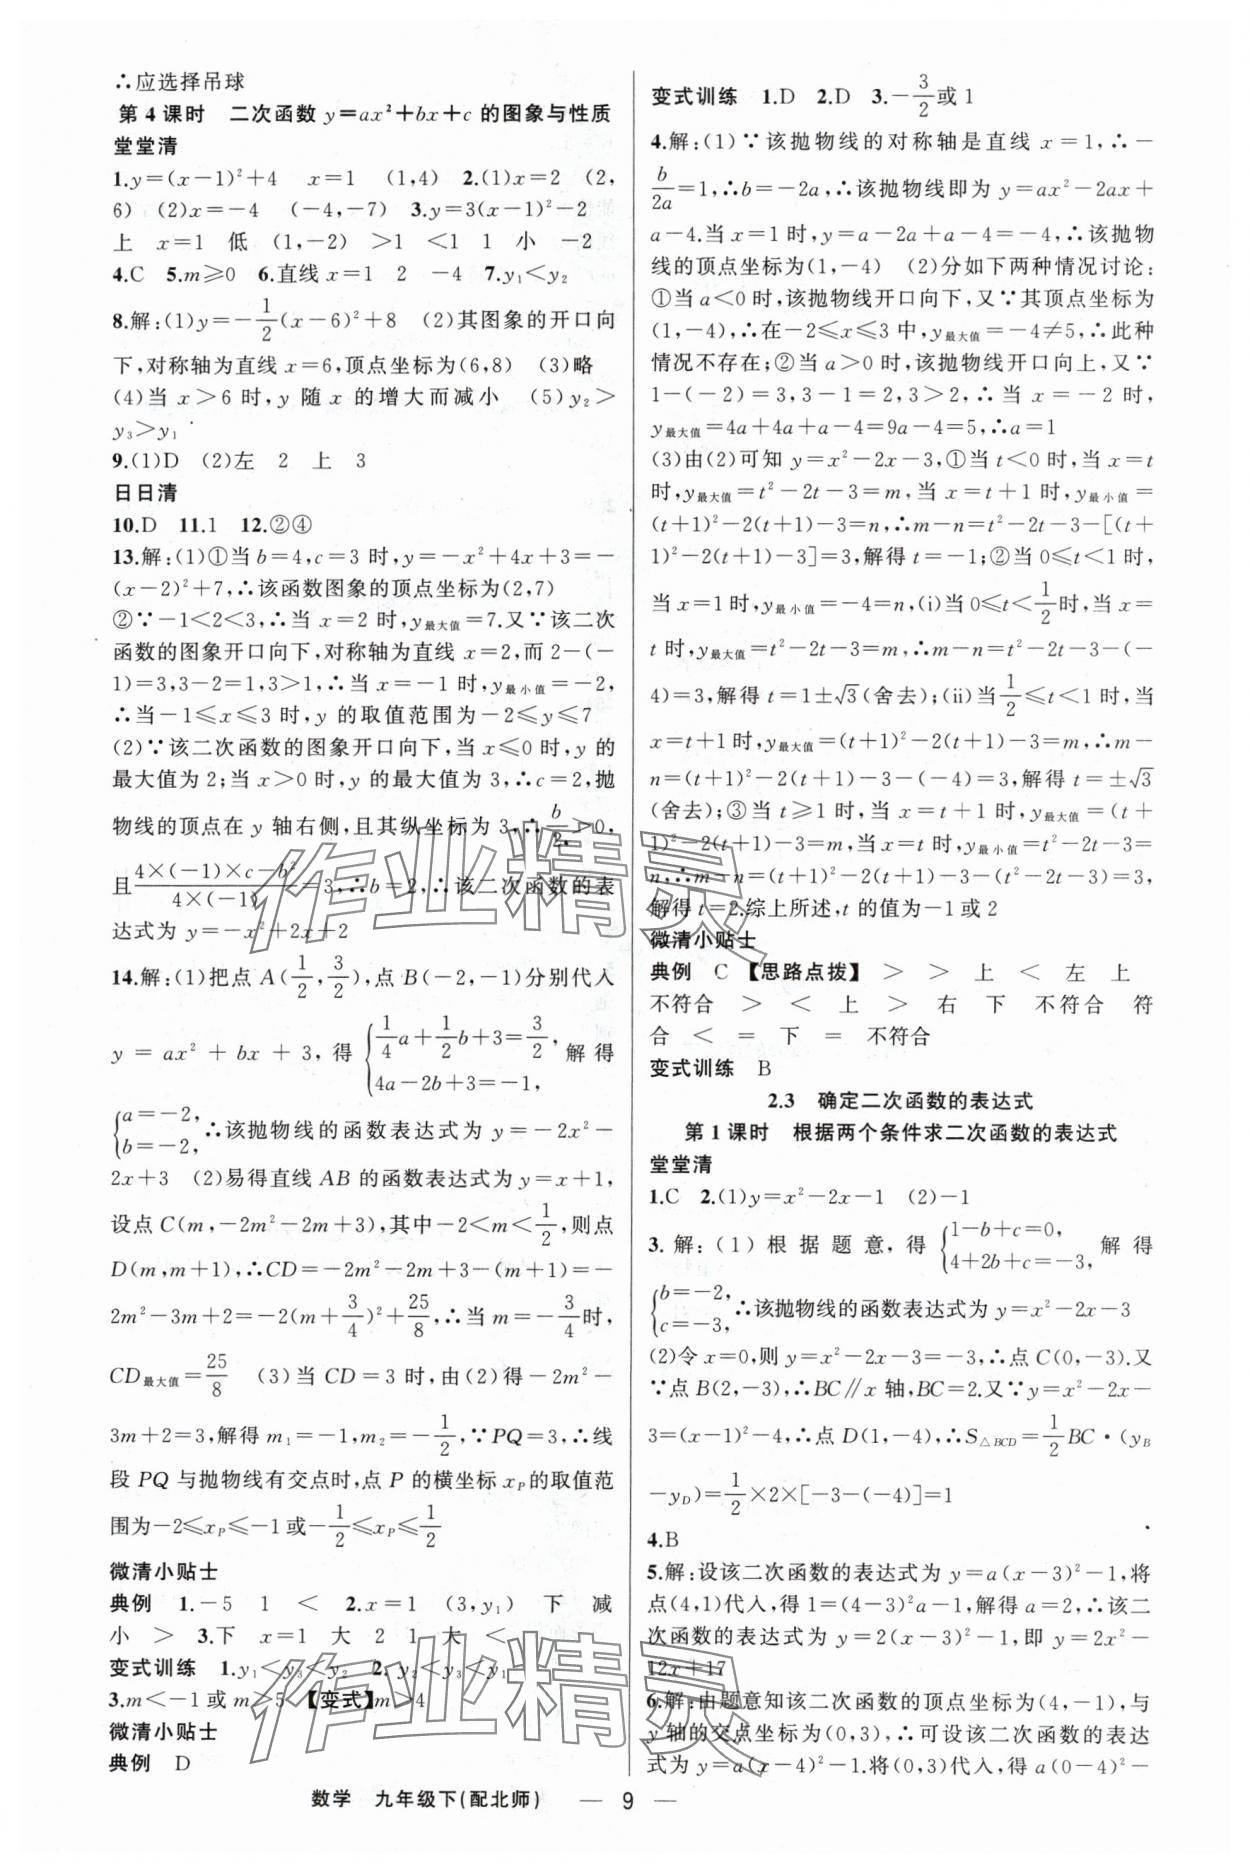 ∴应选择吊球
第4课时 二次函数 y=ax²+bx+c 的图象与性质
堂堂清
1.y=(x-1)²+4 x=1 (1,4) 2.(1)x=2 (2,
6) (2)x=-4 (-4,-7) 3.y=3(x-1)²-2
上 x=1 低 (1,-2) >1 <1 1 小 -2
4.C 5.m≥0 6.直线 x=1 2 -4 7.y₁<y₂
8.解:(1)y=-1/2(x-6)²+8 (2)其图象的开口向
下,对称轴为直线 x=6,顶点坐标为(6,8) (3)略
(4)当 x>6 时,y 随 x 的增大而减小 (5)y₂>
y₃>y₁
9.(1)D (2)左 2 上 3
日日清
10.D 11.1 12.②④
13.解:(1)①当 b=4,c=3 时,y=-x²+4x+3=-
(x-2)²+7,∴该函数图象的顶点坐标为(2,7)
②∵-1<2<3,∴当 x=2 时,y最大值=7.又∵该二次
函数的图象开口向下,对称轴为直线 x=2,而 2-(-
1)=3,3-2=1,3>1,∴当 x=-1 时,y最小值=-2,
∴当-1≤x≤3 时,y 的取值范围为-2≤y≤7
(2)∵该二次函数的图象开口向下,当 x≤0 时,y 的
最大值为 2;当 x>0 时,y 的最大值为 3,∴c=2,抛
物线的顶点在 y 轴右侧,且其纵坐标为 3,∴b/2>0,
且 (4×(-1)×c-b²)/(4×(-1))=3,∴b=2,∴该二次函数的表
达式为 y=-x²+2x+2
14.解:(1)把点 A(1/2,3/2),点 B(-2,-1)分别代入
y=ax²+bx+3,得 {1/4a+1/2b+3=3/2, 4a-2b+3=-1, 解得
{a=-2, b=-2, ∴该抛物线的函数表达式为 y=-2x²-
2x+3 (2)易得直线 AB 的函数表达式为 y=x+1,
设点 C(m,-2m²-2m+3),其中-2<m<1/2,则点
D(m,m+1),∴CD=-2m²-2m+3-(m+1)=-
2m²-3m+2=-2(m+3/4)²+25/8,∴当 m=-3/4时,
CD最大值=25/8 (3)当 CD=3 时,由(2)得-2m²-
3m+2=3,解得 m₁=-1,m₂=-1/2,∵PQ=3,∴线
段 PQ 与抛物线有交点时,点 P 的横坐标 xP的取值范
围为-2≤xP≤-1 或-1/2≤xP≤1/2
微清小贴士
典例 1.-5 1 < 2.x=1 (3,y₁) 下 减
小 > 3.下 x=1 大 2 1 大 <
变式训练 1.y₁<y₃<y₂ 2.y₂<y₃<y₁
3.m<-1 或 m>5 【变式】m>4
微清小贴士
典例 D
变式训练 1.D 2.D 3.-3/2或 1
4.解:(1)∵该抛物线的对称轴是直线 x=1,∴-
b/2a=1,∴b=-2a,∴该抛物线即为 y=ax²-2ax+
a-4.当 x=1 时,y=a-2a+a-4=-4,∴该抛物
线的顶点坐标为(1,-4) (2)分如下两种情况讨论:
①当 a<0 时,该抛物线开口向下,又∵其顶点坐标为
(1,-4),∴在-2≤x≤3 中,y最大值=-4≠5,∴此种
情况不存在;②当 a>0 时,该抛物线开口向上,又∵
1-(-2)=3,3-1=2,3>2,∴当 x=-2 时,
y最大值=4a+4a+a-4=9a-4=5,∴a=1
(3)由(2)可知 y=x²-2x-3,①当 t<0 时,当 x=t
时,y最大值=t²-2t-3=m,当 x=t+1 时,y最小值=
(t+1)²-2(t+1)-3=n,∴m-n=t²-2t-3-[(t+
1)²-2(t+1)-3]=3,解得 t=-1;②当 0≤t<1 时,
当 x=1 时,y最小值=-4=n,(i)当 0≤t<1/2时,当 x=
t 时,y最大值=t²-2t-3=m,∴m-n=t²-2t-3-(-
4)=3,解得 t=1±√3(舍去);(ii)当1/2≤t<1 时,当
x=t+1 时,y最大值=(t+1)²-2(t+1)-3=m,∴m-
n=(t+1)²-2(t+1)-3-(-4)=3,解得 t=±√3
(舍去);③当 t≥1 时,当 x=t+1 时,y最大值=(t+
1)²-2(t+1)-3=m,当 x=t 时,y最小值=t²-2t-3=
n,∴m-n=(t+1)²-2(t+1)-3-(t²-2t-3)=3,
解得 t=2.综上所述,t 的值为-1 或 2
微清小贴士
典例 C 【思路点拨】 > > 上 < 左 上
不符合 > < 上 > 右 下 不符合 符
合 < = 下 = 不符合
变式训练 B
2.3 确定二次函数的表达式
第1课时 根据两个条件求二次函数的表达式
堂堂清
1.C 2.(1)y=x²-2x-1 (2)-1
3.解:(1)根据题意,得 {1-b+c=0, 4+2b+c=-3, 解得
{b=-2, c=-3, ∴该抛物线的函数表达式为 y=x²-2x-3
(2)令 x=0,则 y=x²-2x-3=-3,∴点 C(0,-3).又
∵点 B(2,-3),∴BC∥x 轴,BC=2.又∵y=x²-2x-
3=(x-1)²-4,∴点 D(1,-4),∴S△BCD=1/2BC·(yB
-yD)=1/2×2×[-3-(-4)]=1
4.B
5.解:设该二次函数的表达式为 y=a(x-3)²-1,将
点(4,1)代入,得 1=(4-3)²a-1,解得 a=2,∴该二
次函数的表达式为 y=2(x-3)²-1,即 y=2x²-
12x+17
6.解:由题意知该二次函数的顶点坐标为(4,-1),与
y 轴的交点坐标为(0,3),∴可设该二次函数的表达
式为 y=a(x-4)²-1.将(0,3)代入,得 a(0-4)²-
数学 九年级下(配北师) — 9 —
作业精灵
作业精灵